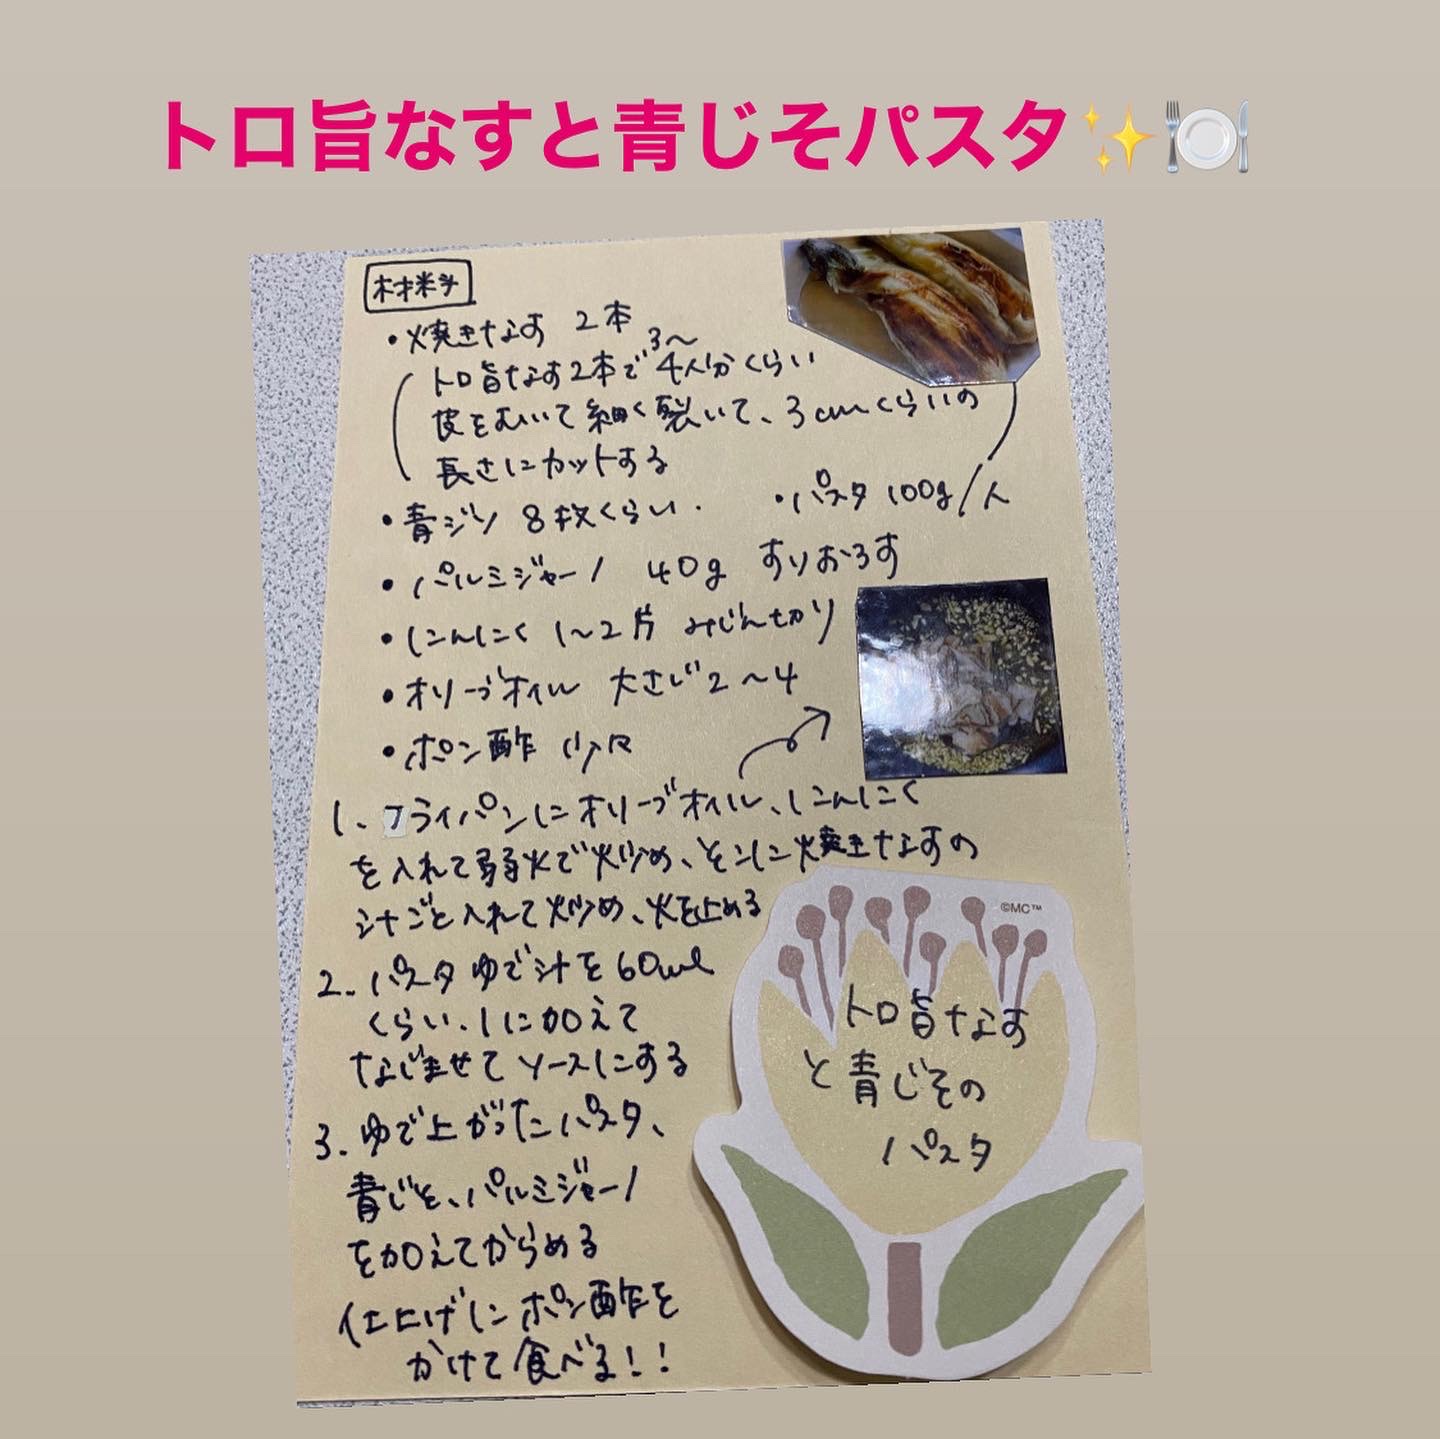 トロ旨なすと青じそパスタ✨🍽️
材料
・焼きなす 2本
トロ旨なす2本で3〜4人分くらい
皮をむいて細く裂いて、3cmくらいの
長さにカットする
・青ジソ 8枚くらい.
・パスタ 100g/人
・パルミジャーノ 40g すりおろす
・にんにく 1〜2片 みじん切り
・オリーブオイル 大さじ2〜4
・ポン酢 少々
1、フライパンにオリーブオイル、にんにく
を入れて弱火で炒め、そこに焼きなすの
汁ごと入れて炒め、火を止める
2.. パスタゆで汁を60ml
くらい、1に加えて
なじませてソースにする
3. ゆで上がったパスタ、
青じそ、パルミジャーノ
を加えてからめる
仕上げにポン酢を
かけて食べる!!
©MC™
トロ旨なす
と青じその
パスタ